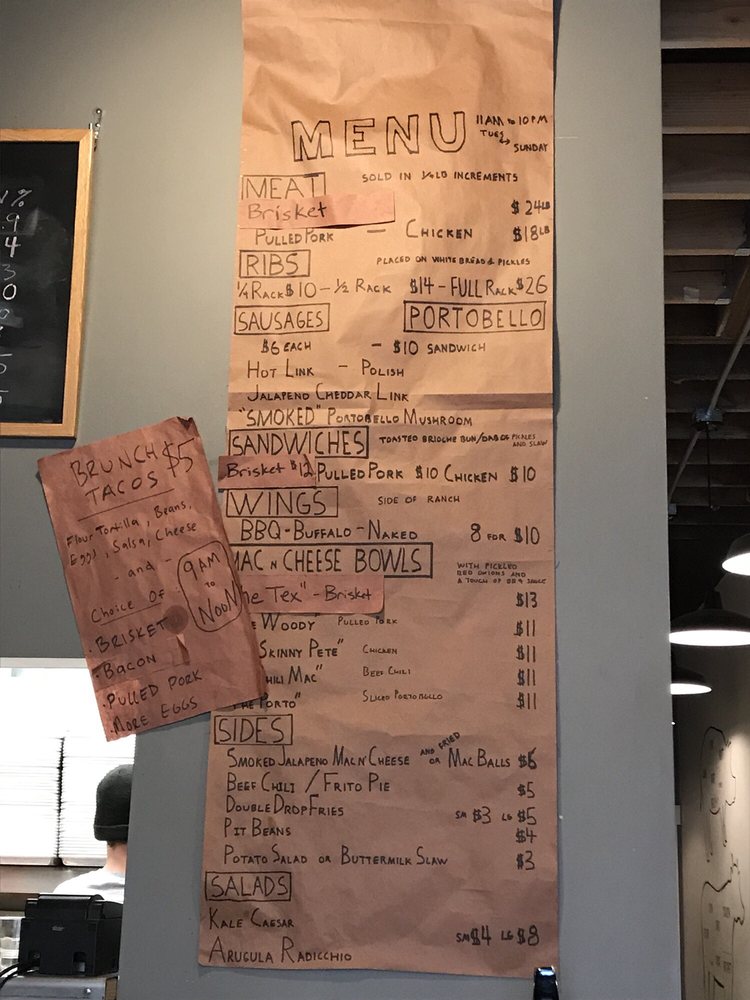 MENU
11AM to 10PM
TUES
SUNDAY
MEAT SOLD IN 1/4LB INCREMENTS
Brisket $24LB
PULLED PORK - CHICKEN $18LB
RIBS PLACED ON WHITE BREAD & PICKLES
1/4 RACK $10 - 1/2 RACK $14 - FULL RACK $26
SAUSAGES PORTOBELLO
$6 EACH - $10 SANDWICH
HOT LINK - POLISH
JALAPENO CHEDDAR LINK
"SMOKED" PORTOBELLO MUSHROOM
SANDWICHES TOASTED BRIOCHE BUN/DAB OF PICKLES AND SLAW
Brisket $12 PULLED PORK $10 CHICKEN $10
WINGS SIDE OF RANCH
BBQ - BUFFALO - NAKED 8 FOR $10
MAC N CHEESE BOWLS WITH PICKLED
RED ONIONS AND
A TOUCH OF BBQ SAUCE
he Tex" - Brisket $13
WOODY" PULLED PORK $11
SKINNY PETE" CHICKEN $11
HILI MAC" BEEF CHILI $11
THE PORTO" SLICED PORTOBELLO $11
SIDES
SMOKED JALAPENO MAC N' CHEESE AND/OR FRIED MAC BALLS $6
BEEF CHILI / FRITO PIE $5
DOUBLE DROP FRIES SM $3 LG $5
PIT BEANS $4
POTATO SALAD OR BUTTERMILK SLAW $3
SALADS
KALE CAESAR
SM $4 LG $8
ARUGULA RADICCHIO
BRUNCH $5
TACOS
Flour Tortilla, Beans,
Eggs, Salsa, Cheese
- and -
Choice Of
9AM
TO
NOON
· BRISKET
· BACON
· PULLED PORK
· MORE EGGS
%
9
4
3
0